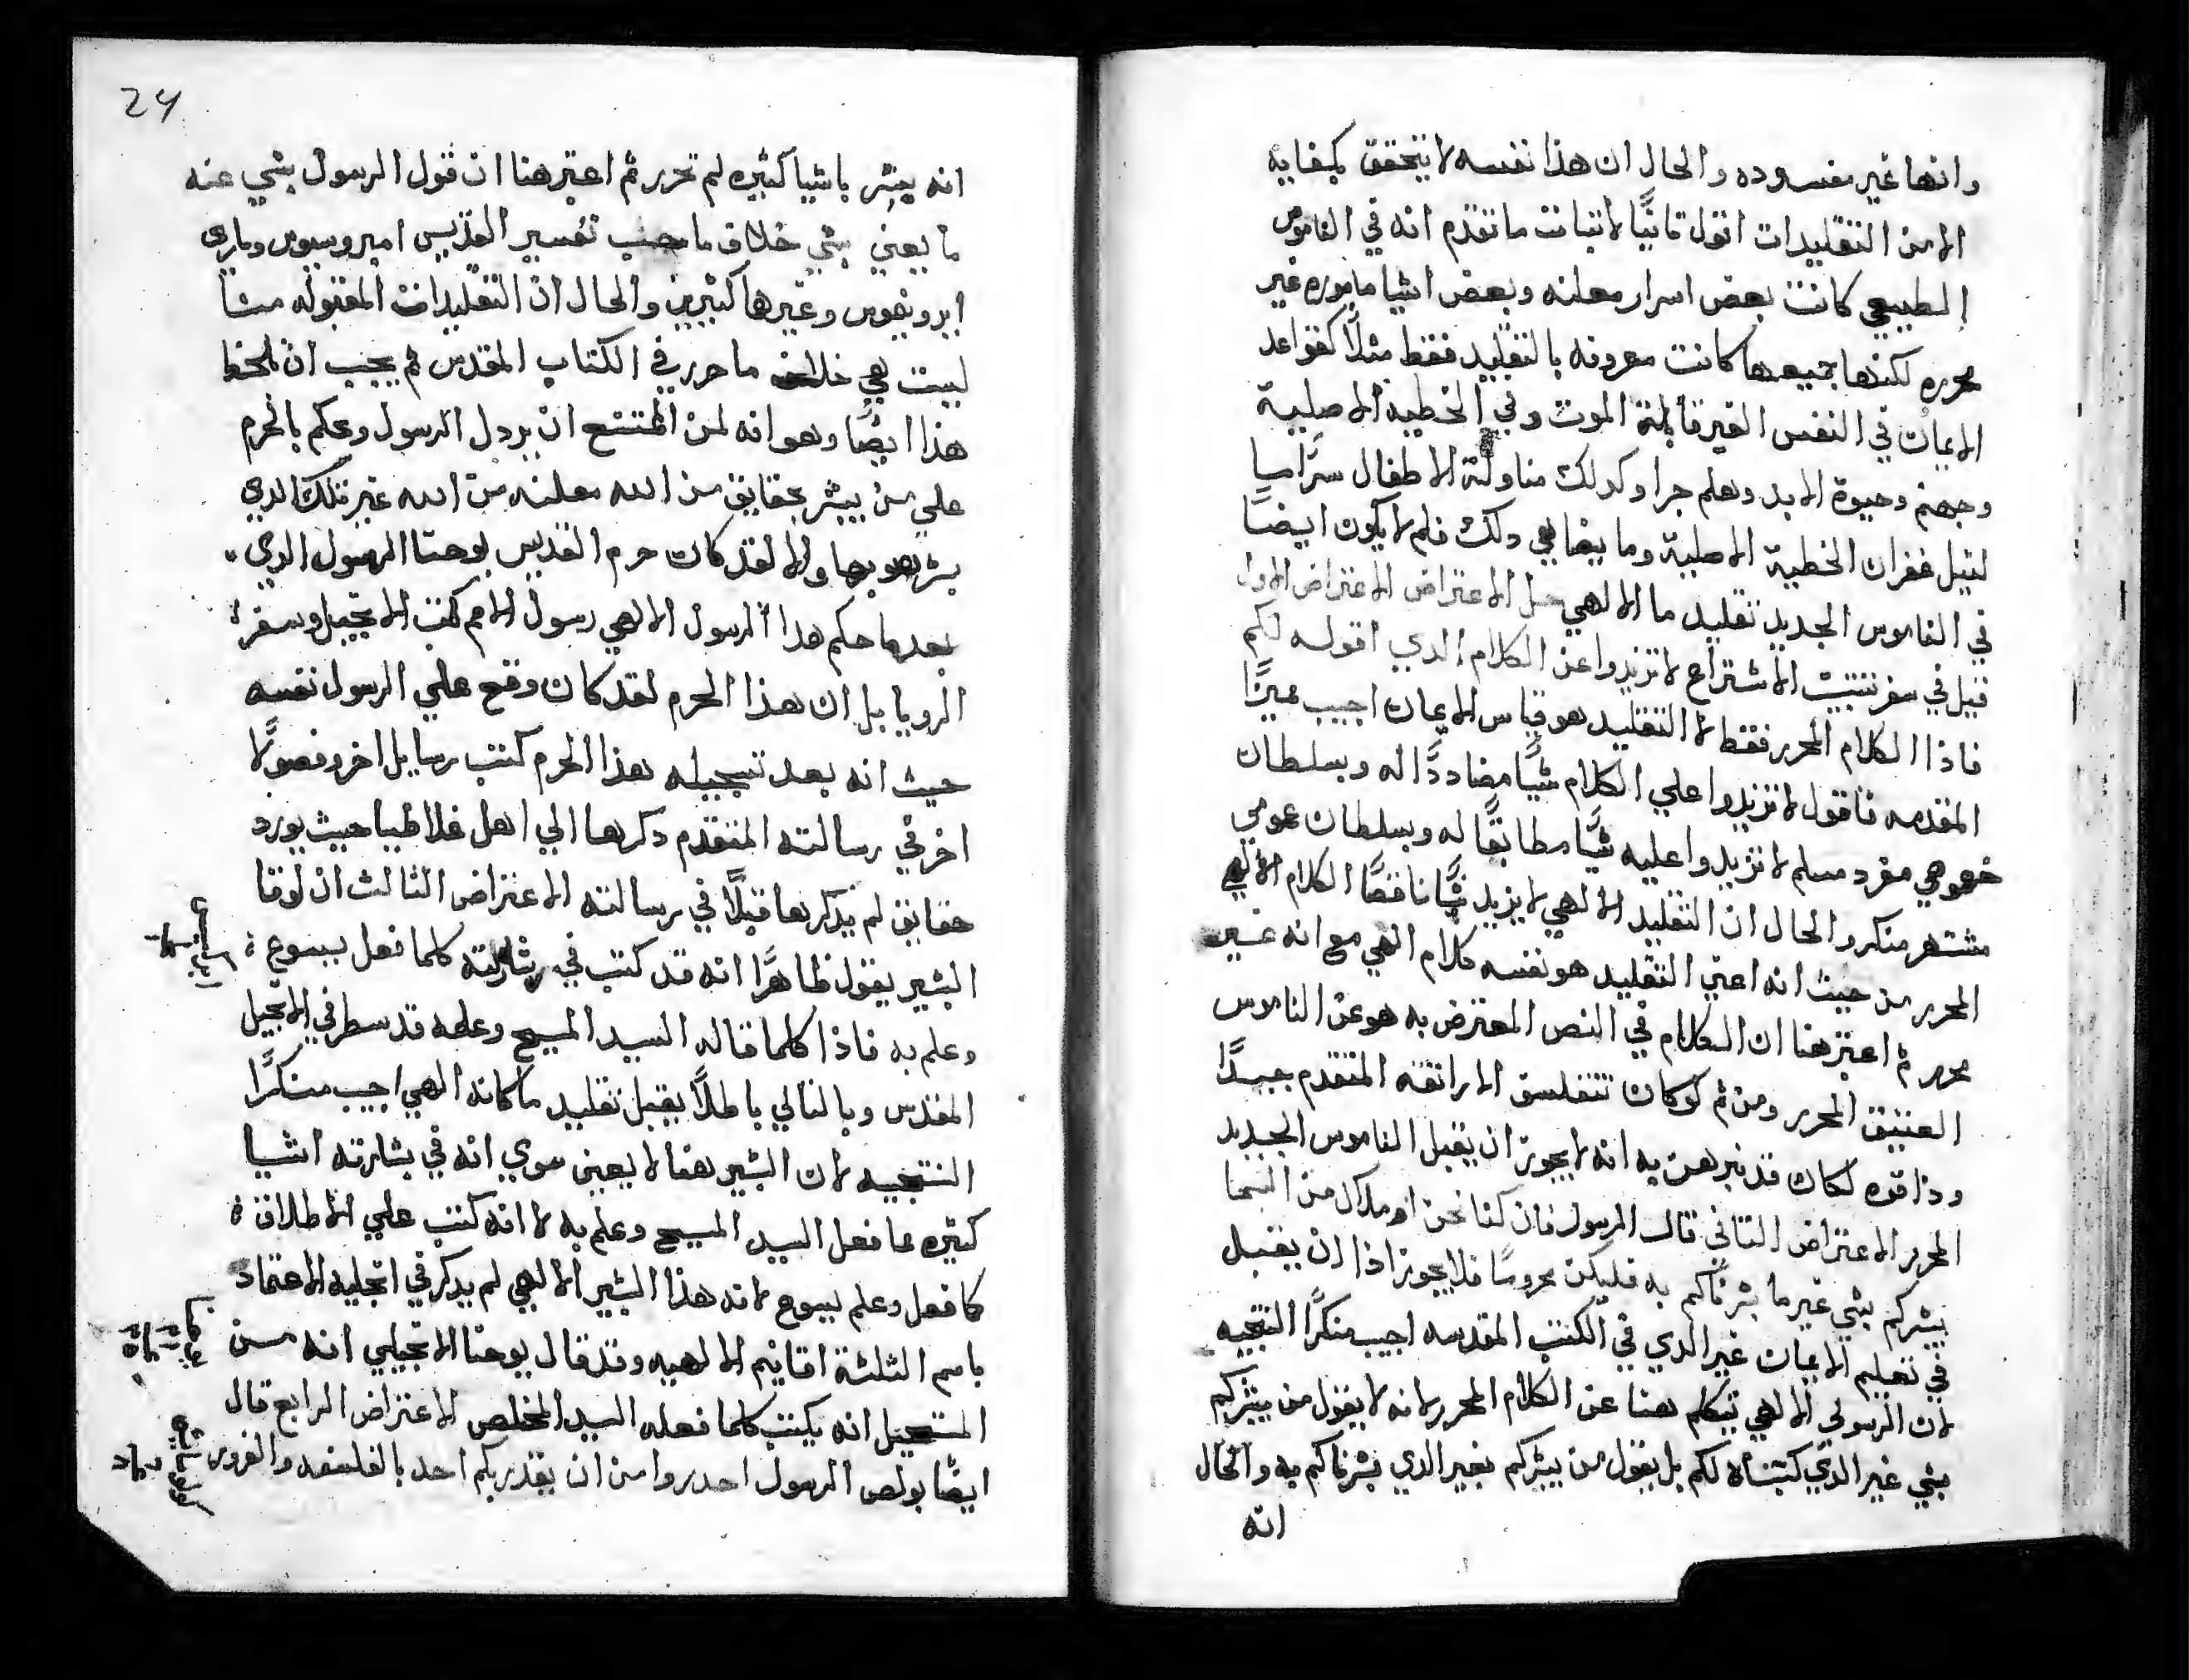 وانها غير مفسوده والحال ان هذا نفسه لا يتحقق بكفايه
الا من التقليدات اقول ثانيًا لاثبات ما تقدم انه في الناموس
الطبيعي كانت بعض اسرار معلنه وبعض اشيا ماموره غير
محرره لكنها جميعها كانت معروفه بالتقليد فقط مثلًا كقواعد
الايمان في النفس الغير قابلة الموت وفي الخطيه الاصلية
وجهنم وحيوة الابد وهلم جرا وكدلك مناولة الاطفال سرًا ما
لنيل غفران الخطية الاصلية وما يضاهي دلك فلم لا يكون ايضًا
في الناموس الجديد تقليد ما الالهي حل الاعتراض الاعتراض الاول
قيل في سفر تثنيت الاشتراع لا تزيدوا عن الكلام الدي اقوله لكم
فاذا الكلام المحرر فقط لا التقليد هو قياس الايمان اجيب مميزًا
المقدمه فاقول لا تزيدوا علي الكلام شيًا مضاددًا له وبسلطان
خصوصي مفرد مسلم لا تزيدوا عليه شيًا مطابقًا له وبسلطان عمومي
مشتهر منكر والحال ان التقليد الالهي لا يزيد شيًا ناقضًا الكلام الالهي
المحرر من حيث انه اعني التقليد هو نفسه كلام الهي مع انه غير
محرر ثم اعتبر هنا ان الكلام في النص المعترض به هو عن الناموس
العتيق المحرر ومن ثم لو كان تتفلسق الاراتقه المتقدم جيدًا
وداقوه لكان قد تبرهن به انه لا يجوز ان يقبل الناموس الجديد
المحرر الاعتراض الثاني قال الرسول فان كنا نحن او ملاك من السما
يبشركم بشي غير ما بشرناكم به فليكن محرومًا فلا يجوز اذا ان يقبل
في تعليم الايمان غير الدي في الكتب المقدسه اجيب منكرًا النتيجيه
لان الرسول الالهي تيكلم هنا عن الكلام المحرر لانه لا يقول من يبشركم
بشي غير الدي كتبناه لكم بل يقول من يبشركم بغير الدي بشرناكم به والحال
انه
24
انه يبشر باشيا كثيره لم تحرر ثم اعتبر هنا ان قول الرسول بشي عنه
ما يعني بشي خلاف ما حسب تفسير القديس امبروسيوس وماري
ايرونيموس وغيرها كثيرين والحال ان التقليدات المقبوله منا
ليست هي خلاف ما حرر في الكتاب المقدس ثم يجب ان نلحظ
هذا ايضًا وهو انه لمن الممتنع ان يردل الرسول ويحكم بالحرم
علي من يبشر بحقايق من الله معلنه من الله غير تلك الدي
بشر هو بها والا لقد كان حرم القديس يوحنا الرسول الدي
بعدما حكم هدا الرسول الالهي رسول الامم كتب الانجيل وسفر
الرويا بل ان هذا الحرم لقد كان وقع علي الرسول نفسه
حيث انه بعد تسجيله هذا الحرم كتب رسايل اخر وفصولًا
اخر في رسالته المتقدم دكرها الي اهل غلاطيا حيث يورد
حقايق لم يدكرها قبلًا في رسالته الاعتراض الثالث ان لوقا
البشير يقول ظاهرًا انه قد كتب في بشارته كلما فعل يسوع
وعلم به فاذا كلما قاله السيد المسيح وعلمه قد سطر في الانجيل
المقدس وبالتالي باطلًا يقبل تقليد ما كانه الهي اجيب منكرًا
النتيجيه لان البشير هنا لا يعين سوي انه في بشارته اشيا
كثيره مما فعل السيد المسيح وعلم به لا انه كتب علي الاطلاق
كلما فعل وعلم يسوع لانه هذا البشير الالهي لم يدكر في انجليه الاعتماد
باسم الثلثة اقانيم الالهيه وقد قال يوحنا الانجيلي انه من
المستحيل انه يكتب كلما فعله السيد المخلص الاعتراض الرابع قال
ايضًا بولص الرسول احدروا من ان يقدر بكم احد بالفلسفه والغرور